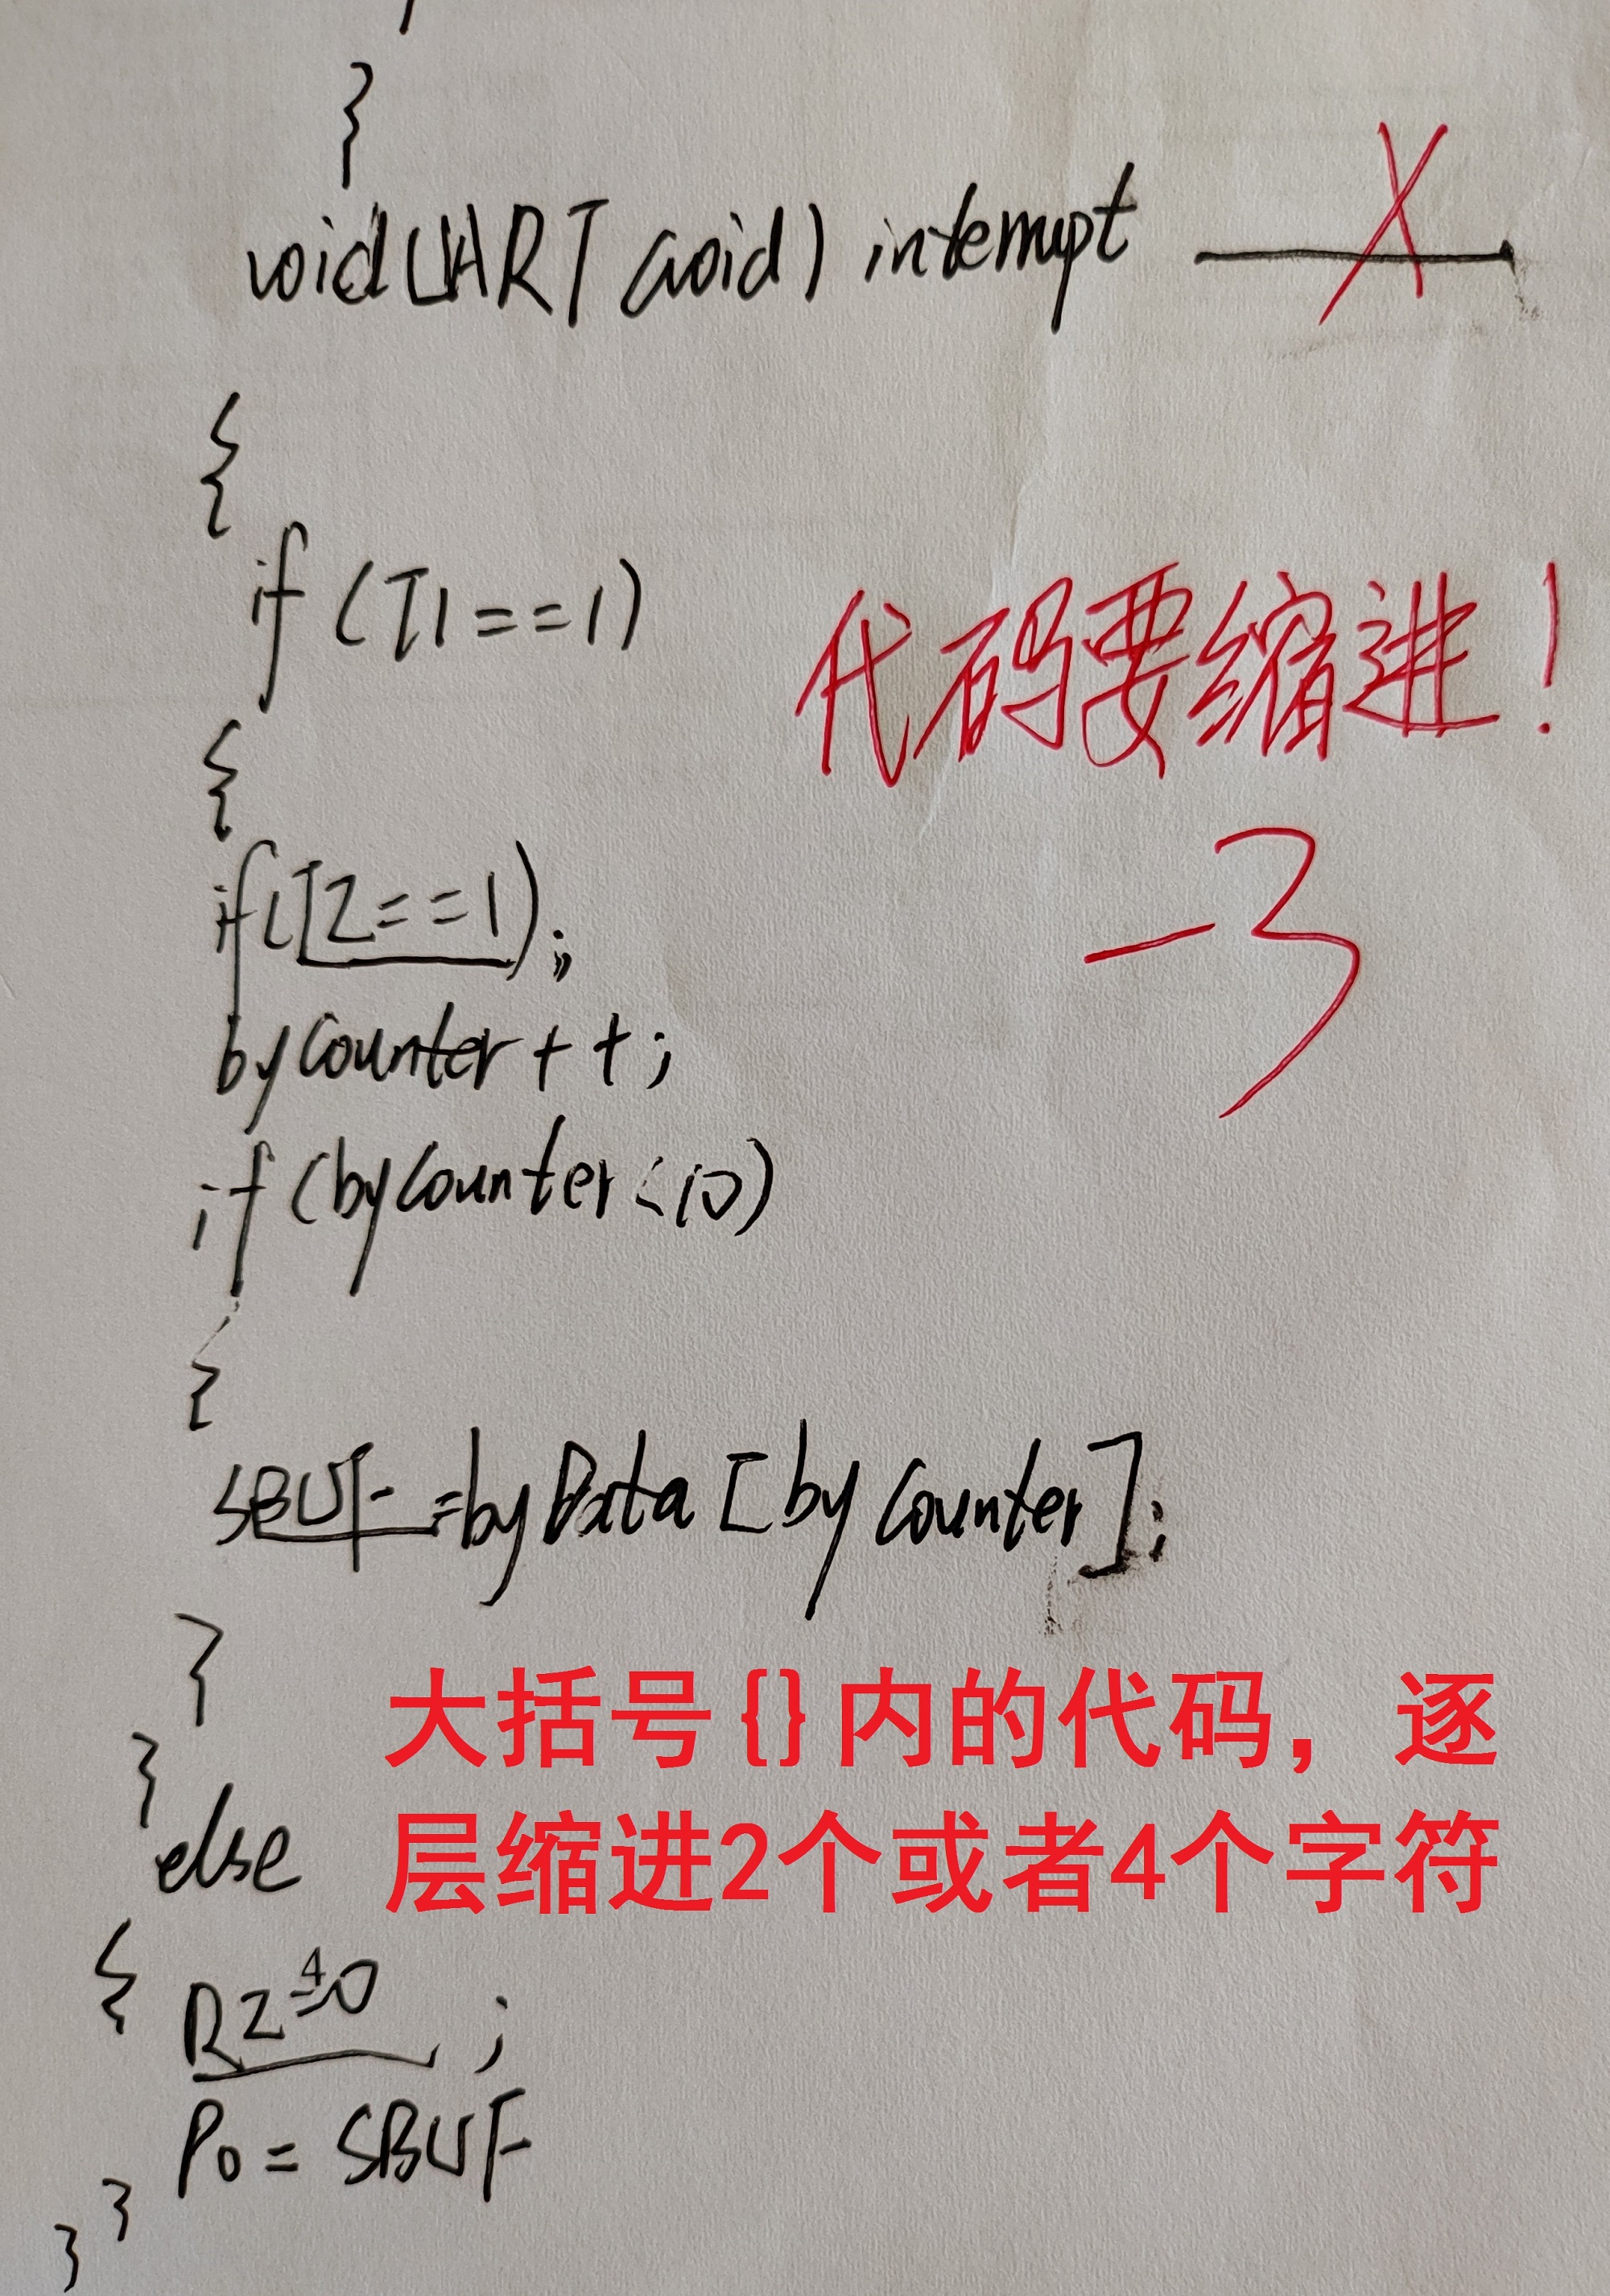 }
void UART (void) interrupt
{
if (TI==1)
代码要缩进!
{
-3
if(TZ==1);
byCounter++;
if (byCounter<10)
{
SBUF=byData[byCounter];
}
大括号{}内的代码，逐
}
else
层缩进2个或者4个字符
{
RZ=0 ;
P0=SBUF
}
}